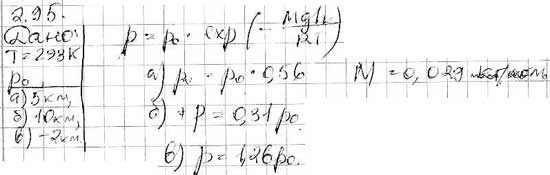 2.95.
Дано:
T=293K
p₀
а) 5 км,
б) 10 км,
в) -2 км.
p = p₀ · exp (- Mgh/RT)
а) p = p₀ · 0,56
M = 0,029
б) p = 0,31 p₀.
в) p = 1,26 p₀.